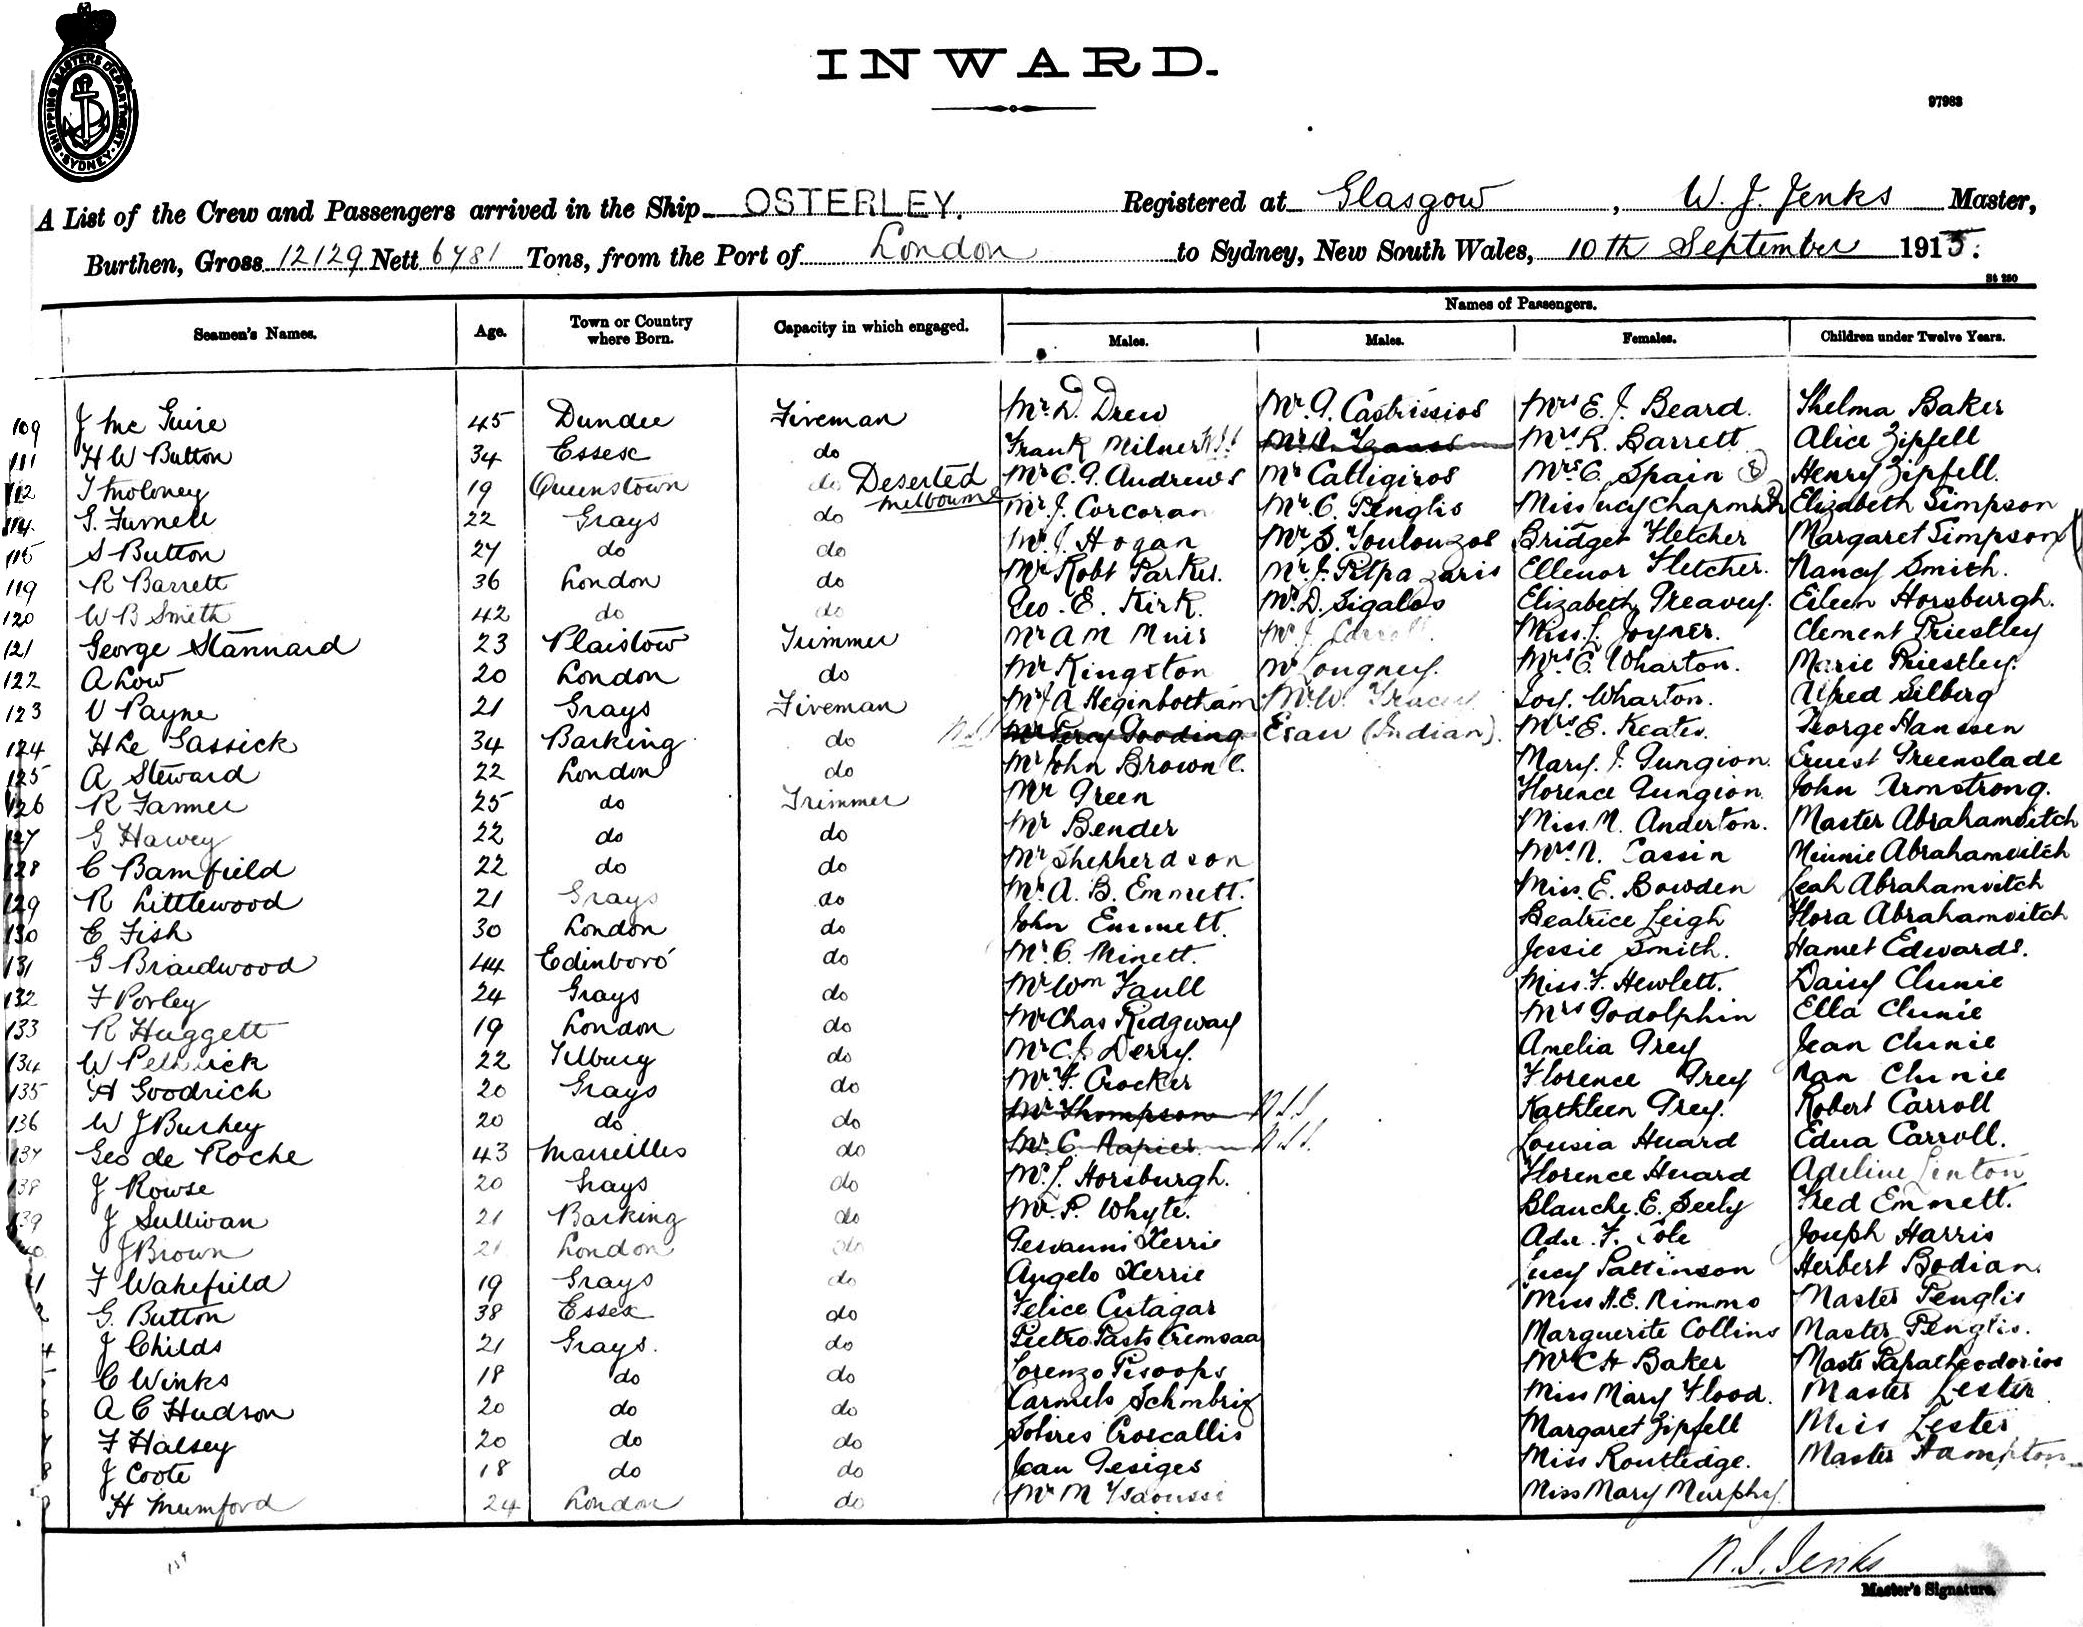 SHIPPING MASTERS DEPARTMENT SYDNEY
INWARD.
97983
A List of the Crew and Passengers arrived in the Ship OSTERLEY. Registered at Glasgow, W. J. Jenks Master,
Burthen, Gross 12129 Nett 6781 Tons, from the Port of London to Sydney, New South Wales, 10th September 1915.
St 250
Names of Passengers.
Seamen's Names. Age. Town or Country where Born. Capacity in which engaged. Males. Males. Females. Children under Twelve Years.
109 J Mc Guire 45 Dundee Fireman Mr D. Drew Mr. A. Castrissios Mrs E. J. Beard. Thelma Baker
111 H W Button 34 Essex do Frank Milner Mrs R. Barrett Alice Zipfell
112 T Moloney 19 Queenstown do Deserted Melbourne Mr C. A. Andrews Mr Calligiros Mrs C. Spain Henry Zipfell.
114 G. Furnell 22 Grays do Mr. J. Corcoran Mr. C. Penglis Miss Lucy Chapman Elizabeth Simpson
115 S Button 27 do do Mr. J. Hogan Mr S. Toulouzos Bridget Fletcher Margaret Simpson
119 R Barrett 36 London do Mr Robt Parkes. Mr. J. Ellenor Fletcher. Nancy Smith.
120 W B Smith 42 do do Geo. E. Kirk. Mr. D. Sigalas Elizabeth Greavey. Eileen Horsburgh.
121 George Stannard 23 Plaistow Trimmer Mr A M Muir Mr J. Carroll. Miss. L. Joyner. Clement Priestley
122 A Low 20 London do Mr Kingston Mr Longney. Mrs. C. Wharton. Marie Priestley.
123 V Payne 21 Grays Fireman Mr J A Heginbotham Mr. W. Tracey Joy. Wharton. Alfred Silberg
124 H Le Gassick 34 Barking do Mr Percy Gooding Esau (Indian). Mrs. E. Keates. George Hanssen
125 A Steward 22 London do Mr John Brown Mary. J. Gungion. Ernest Greenslade
126 R Farmer 25 do Trimmer Mr Green Florence Gungion John Armstrong.
127 G Hawey 22 do do Mr Bender Miss. M. Anderton. Master Abrahamovitch
128 C Bamfield 22 do do Mr Shepherdson Mrs. N. Cassin Minnie Abrahamovitch
129 R Littlewood 21 Grays do Mr. A. B. Emmett. Miss. E. Bowden Leah Abrahamovitch
130 C Fish 30 London do John Emmett. Beatrice Leigh Flora Abrahamovitch
131 G Braidwood 44 Edinboro' do Mr. C. Minett. Jessie Smith. Hamet Edwards.
132 F Porley 24 Grays do Mr Wm Faull Miss. F. Hewlett. Daisy Clunie
133 R Huggett 19 London do Mr Chas Ridgway Mrs Godolphin Ella Clunie
134 W 22 Tilbury do Mr C. J. Derry. Amelia Grey Jean Clunie
135 H Goodrich 20 Grays do Mr. F. Crocker Florence Grey Nan Clunie
136 W J Bushey 20 do do Mr Thompson Kathleen Grey. Robert Carroll
137 Geo de Roche 43 Marseilles do Mr. C. Napier Lousia Huard Edna Carroll.
138 J Rowse 20 Grays do Mr. J. Horsburgh. Florence Huard Adeline Linton
139 J Sullivan 21 Barking do Mr. P. Whyte. Blanche. E. Seely Fred Emmett.
J Brown 21 London do Gervanni Xerrie Ada. F. Cole Joseph Harris
F Wakefield 19 Grays do Angelo Xerrie Lucy Pattinson Herbert Bodian.
G. Button 38 Essex do Felice Cutagar Miss A. E. Nimmo Master Penglis
4 J Childs 21 Grays. do Pietro Marguerite Collins Master Penglis.
5 C Winks 18 do do Lorenzo Pisoops Mrs C H Baker Mastr Papatheodorios
6 A C Hudson 20 do do Carmelo Schmbrig Miss Mary Flood. Master Lester
7 F Halsey 20 do do Sotires Croscallis Margaret Zipfell Miss Lester
8 J Coote 18 do do Jean Gesiges Miss Routledge. Master Hampton
H Mumford 24 London do Mr M Tsaoussi Miss Mary Murphy.
W. J. Jenks
Master's Signature.